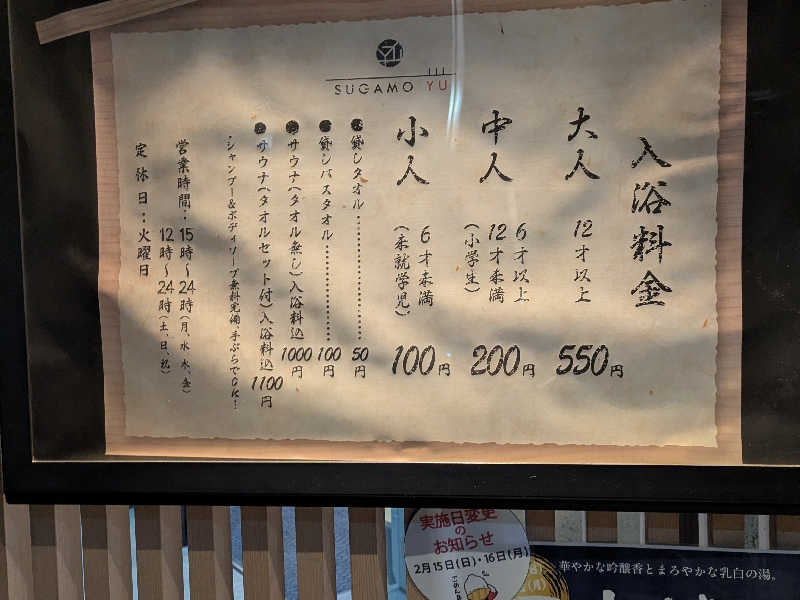 SUGAMO YU
入浴料金
大人 12才以上 550円
中人 6才以上 12才未満 (小学生) 200円
小人 6才未満 (未就学児) 100円
●貸しタオル 50円
●貸しバスタオル 100円
●サウナ(タオル無し)入浴料込 1000円
●サウナ(タオルセット付)入浴料込 1100円
・シャンプー&ボディソープ無料完備 手ぶらでOK!
営業時間:15時〜24時(月、水、木、金)
12時〜24時(土、日、祝)
定休日:火曜日
実施日変更
の
お知らせ
2月15日(日)・16日(月)
華やかな吟醸香とまろやかな乳白の湯。